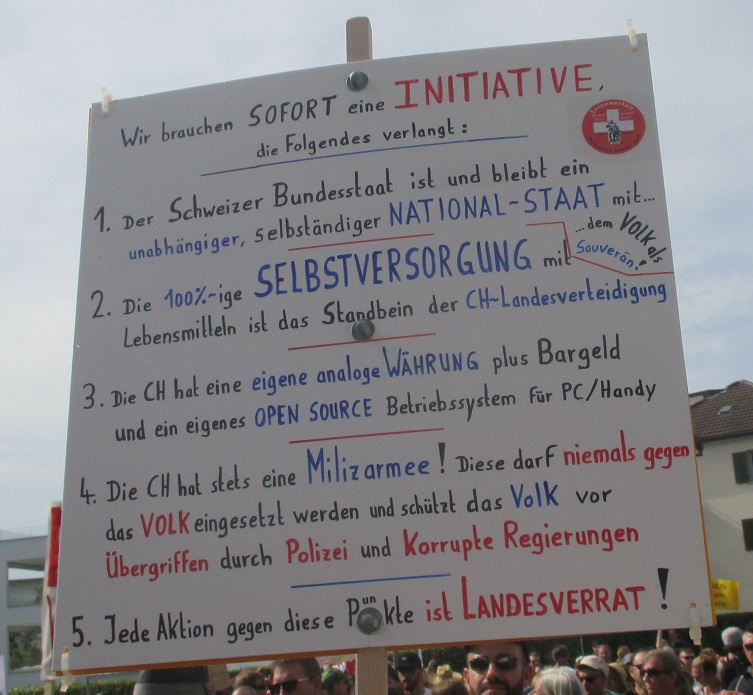 Wir brauchen SOFORT eine INITIATIVE,
die Folgendes verlangt:
1. Der Schweizer Bundesstaat ist und bleibt ein
unabhängiger, selbständiger NATIONAL-STAAT mit...
...dem VOLK als
Souverän!
2. Die 100%-ige SELBSTVERSORGUNG mit
Lebensmitteln ist das Standbein der CH-Landesverteidigung
3. Die CH hat eine eigene analoge WÄHRUNG plus Bargeld
und ein eigenes OPEN SOURCE Betriebssystem für PC/Handy
4. Die CH hat stets eine Milizarmee! Diese darf niemals gegen
das VOLK eingesetzt werden und schützt das Volk vor
Übergriffen durch Polizei und Korrupte Regierungen
5. Jede Aktion gegen diese Pünkte ist LANDESVERRAT!